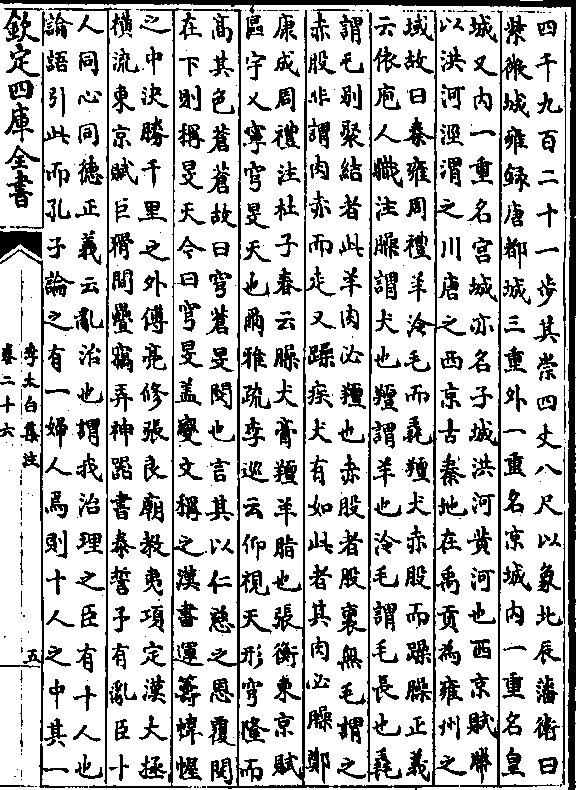 四千九百二十一步其崇四丈八尺以象北辰藩衛曰
紫微城雍錄唐都城三重外一重名京城内一重名皇
城又内一重名宫城亦名子城洪河黄河也西京賦聨
以洪河涇渭之川唐之西京古秦地在禹貢為雍州之
域故曰秦雍周禮羊泠毛而毳羶犬赤股而躁臊正義
云依庖人職注臊謂犬也羶謂羊也泠毛謂毛長也毳
謂毛别聚結者此羊肉必羶也赤股者股裏無毛謂之
赤股非謂肉赤而走又躁疾犬有如此者其肉必臊鄭
康成周禮注杜子春云臊犬膏羶羊脂也張衡東京賦
區宇乂寧穹旻天也爾雅疏李巡云仰視天形穹隆而
髙其色蒼蒼故曰穹蒼旻閔也言其以仁慈之恩覆閔
在下則稱旻天今曰穹旻葢變文稱之漢書運籌幃幄
之中決勝千里之外傅亮修張良廟教夷項定漢大拯
横流東京賦巨猾間舋竊弄神器書泰誓予有亂臣十
人同心同德正義云亂治也謂我治理之臣有十人也
論語引此而孔子論之有一婦人焉則十人之中其一
欽定四庫全書
李太白集注
卷二十六
五